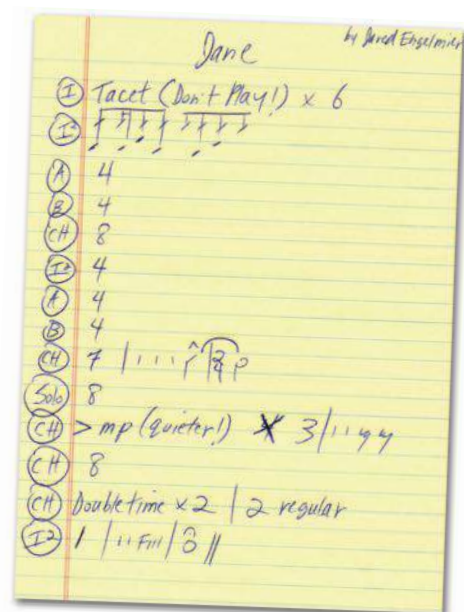 Jane
by Jared Engelmier
I Tacet (Don't Play!) x 6
I²
A 4
B 4
CH 8
I² 4
A 4
B 4
CH 7
Solo 8
CH > mp (quieter!) 3
CH 8
CH Doubletime x 2 | 2 regular
I2 Fill